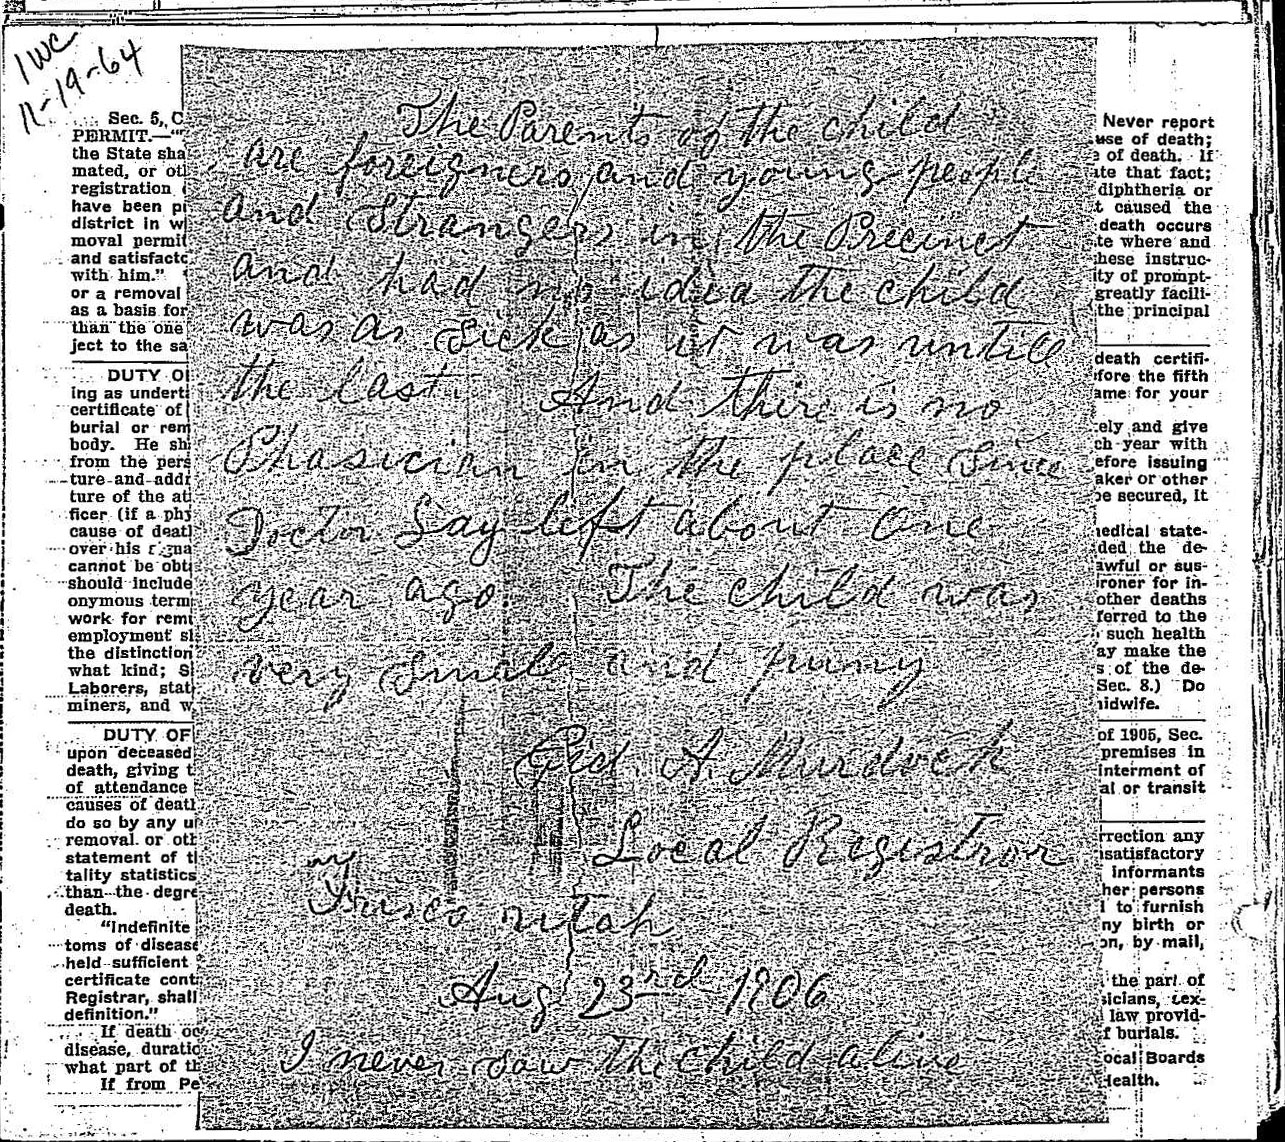 IWC
11-19-64
The Parents of the child
are foreigners, and young people
and Strangers in the Precinct
and had no idia the child
was as sick as it was untill
the last. And there is no
Phasician in the place since
Doctor Say left about one
year ago The child was
very small and puny
Gid. A. Murdock
Local Registror
my
Frisco utah
Aug 23rd 1906
I never saw the child alive
Sec. 5, C
PERMIT.—"
the State sha
mated, or otl
registration
have been pi
district in w
moval permit
and satisfactc
with him."
or a removal
as a basis for
than the one
ject to the sa
DUTY O
ing as undert
certificate of
burial or rem
body. He sh
from the pers
ture and addr
ture of the at
ficer (if a phy
cause of deatl
over his signa
cannot be obt
should include
onymous term
work for rem
employment sl
the distinction
what kind; S
Laborers, stat
miners, and w
DUTY OF
upon deceased
death, giving t
of attendance
causes of deatl
do so by any u
removal or oth
statement of t
tality statistics
than the degre
death.
"Indefinite
toms of disease
held sufficient
certificate cont
Registrar, shall
definition."
If death oc
disease, duratio
what part of th
If from Pe
Never report
use of death;
e of death. If
ate that fact;
diphtheria or
t caused the
death occurs
te where and
hese instruc-
ity of prompt-
greatly facili-
the principal
death certifi-
fore the fifth
ame for your
ely and give
ch year with
efore issuing
aker or other
be secured, it
edical state-
ded the de-
awful or sus-
roner for in-
other deaths
ferred to the
such health
ay make the
s of the de-
Sec. 8.) Do
midwife.
of 1905, Sec.
premises in
interment of
al or transit
rrection any
satisfactory
informants
her persons
to furnish
ny birth or
on, by mail,
the part of
sicians, sex-
law provid-
f burials.
ocal Boards
Health.